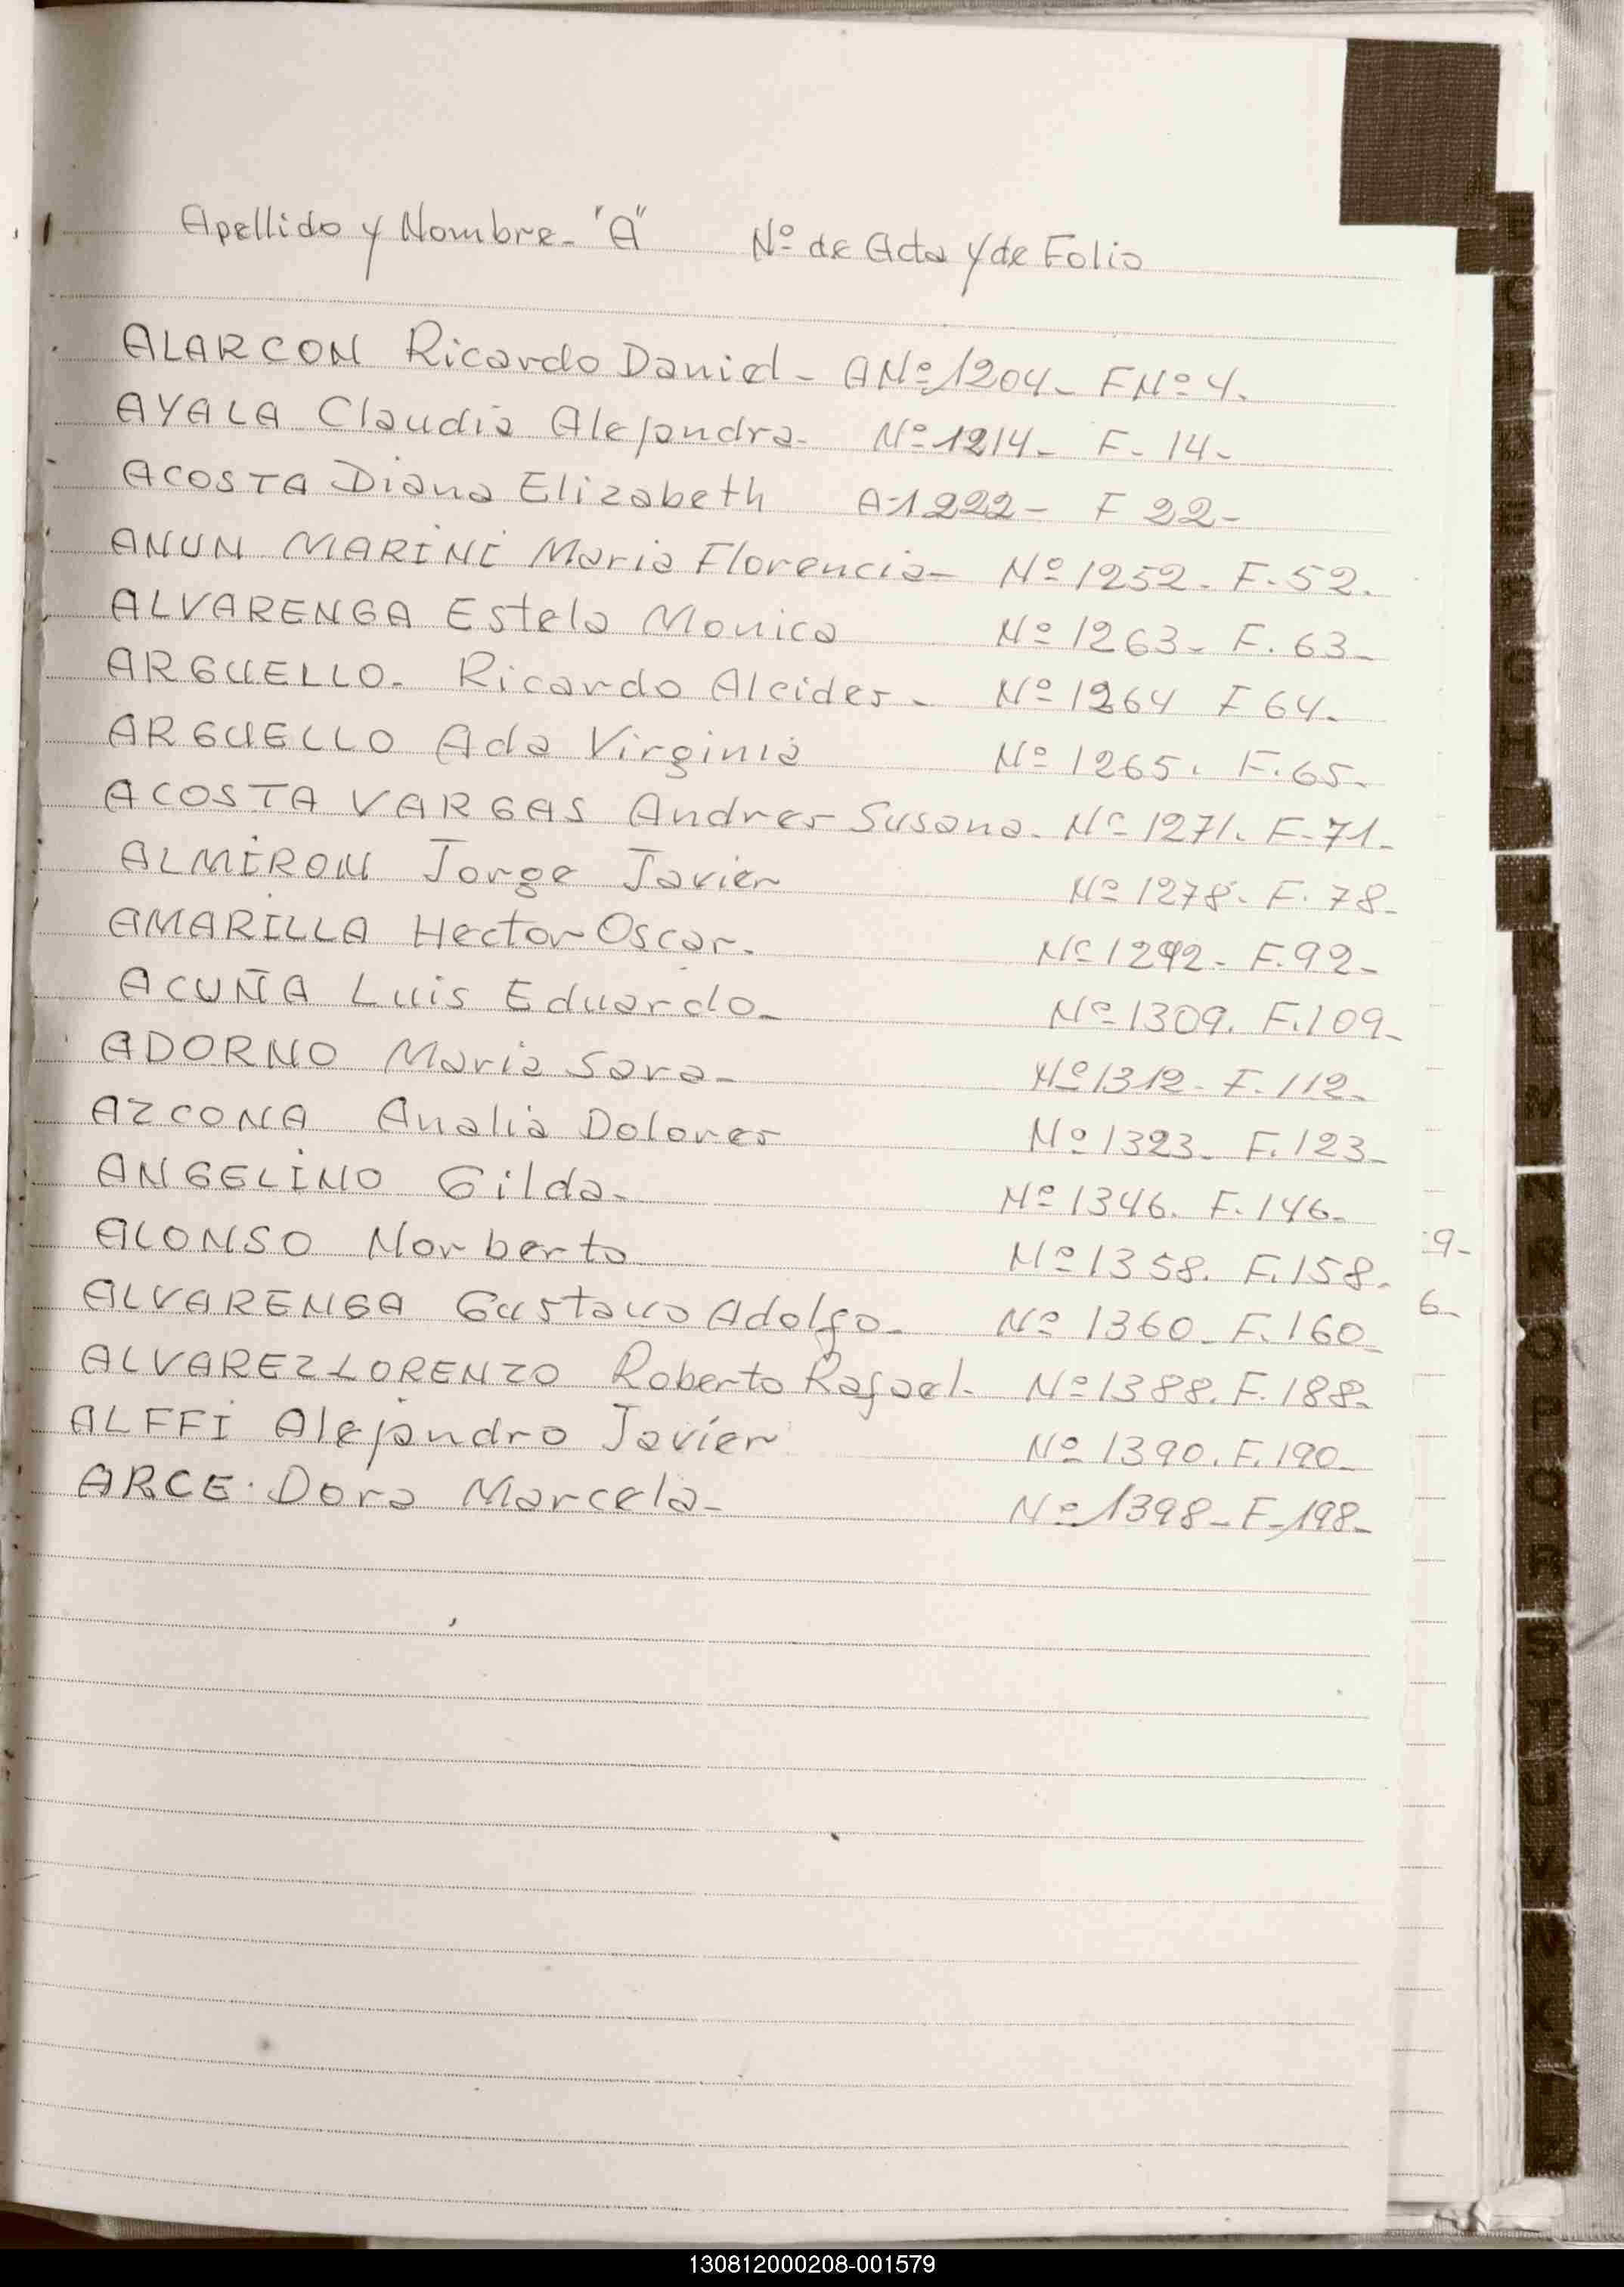 Apellido y Nombre- "A" Nº de Acta y de Folio
ALARCON Ricardo Daniel- ANº 1204- FNº 4.
AYALA Claudia Alejandra- Nº 1214- F- 14-
ACOSTA Diana Elizabeth A-1222- F 22-
ANUN MARINI Maria Florencia- Nº 1252- F-52.
ALVARENGA Estela Monica Nº 1263- F. 63-
ARGUELLO- Ricardo Alcides- Nº 1264 F 64-
ARGUELLO Ada Virginia Nº 1265. F.65-
ACOSTA VARGAS Andrea Susana- Nº 1271. F-71-
ALMIRON Jorge Javier Nº 1278- F. 78-
AMARILLA Hector Oscar. Nº 1292- F.92-
ACUÑA Luis Eduardo- Nº 1309. F.109-
ADORNO Maria Sara- Nº 1312- F.112-
AZCONA Analia Dolores Nº 1323- F.123-
ANGELINO Gilda- Nº 1346. F.146-
ALONSO Norberto Nº 1358. F.158-
ALVARENGA Gustavo Adolfo- Nº 1360- F.160
ALVAREZ LORENZO Roberto Rafael- Nº 1388. F.188-
ALFFI Alejandro Javier Nº 1390. F.190-
ARCE. Dora Marcela- Nº 1398- F-198-
9-
6-
130812000208-001579